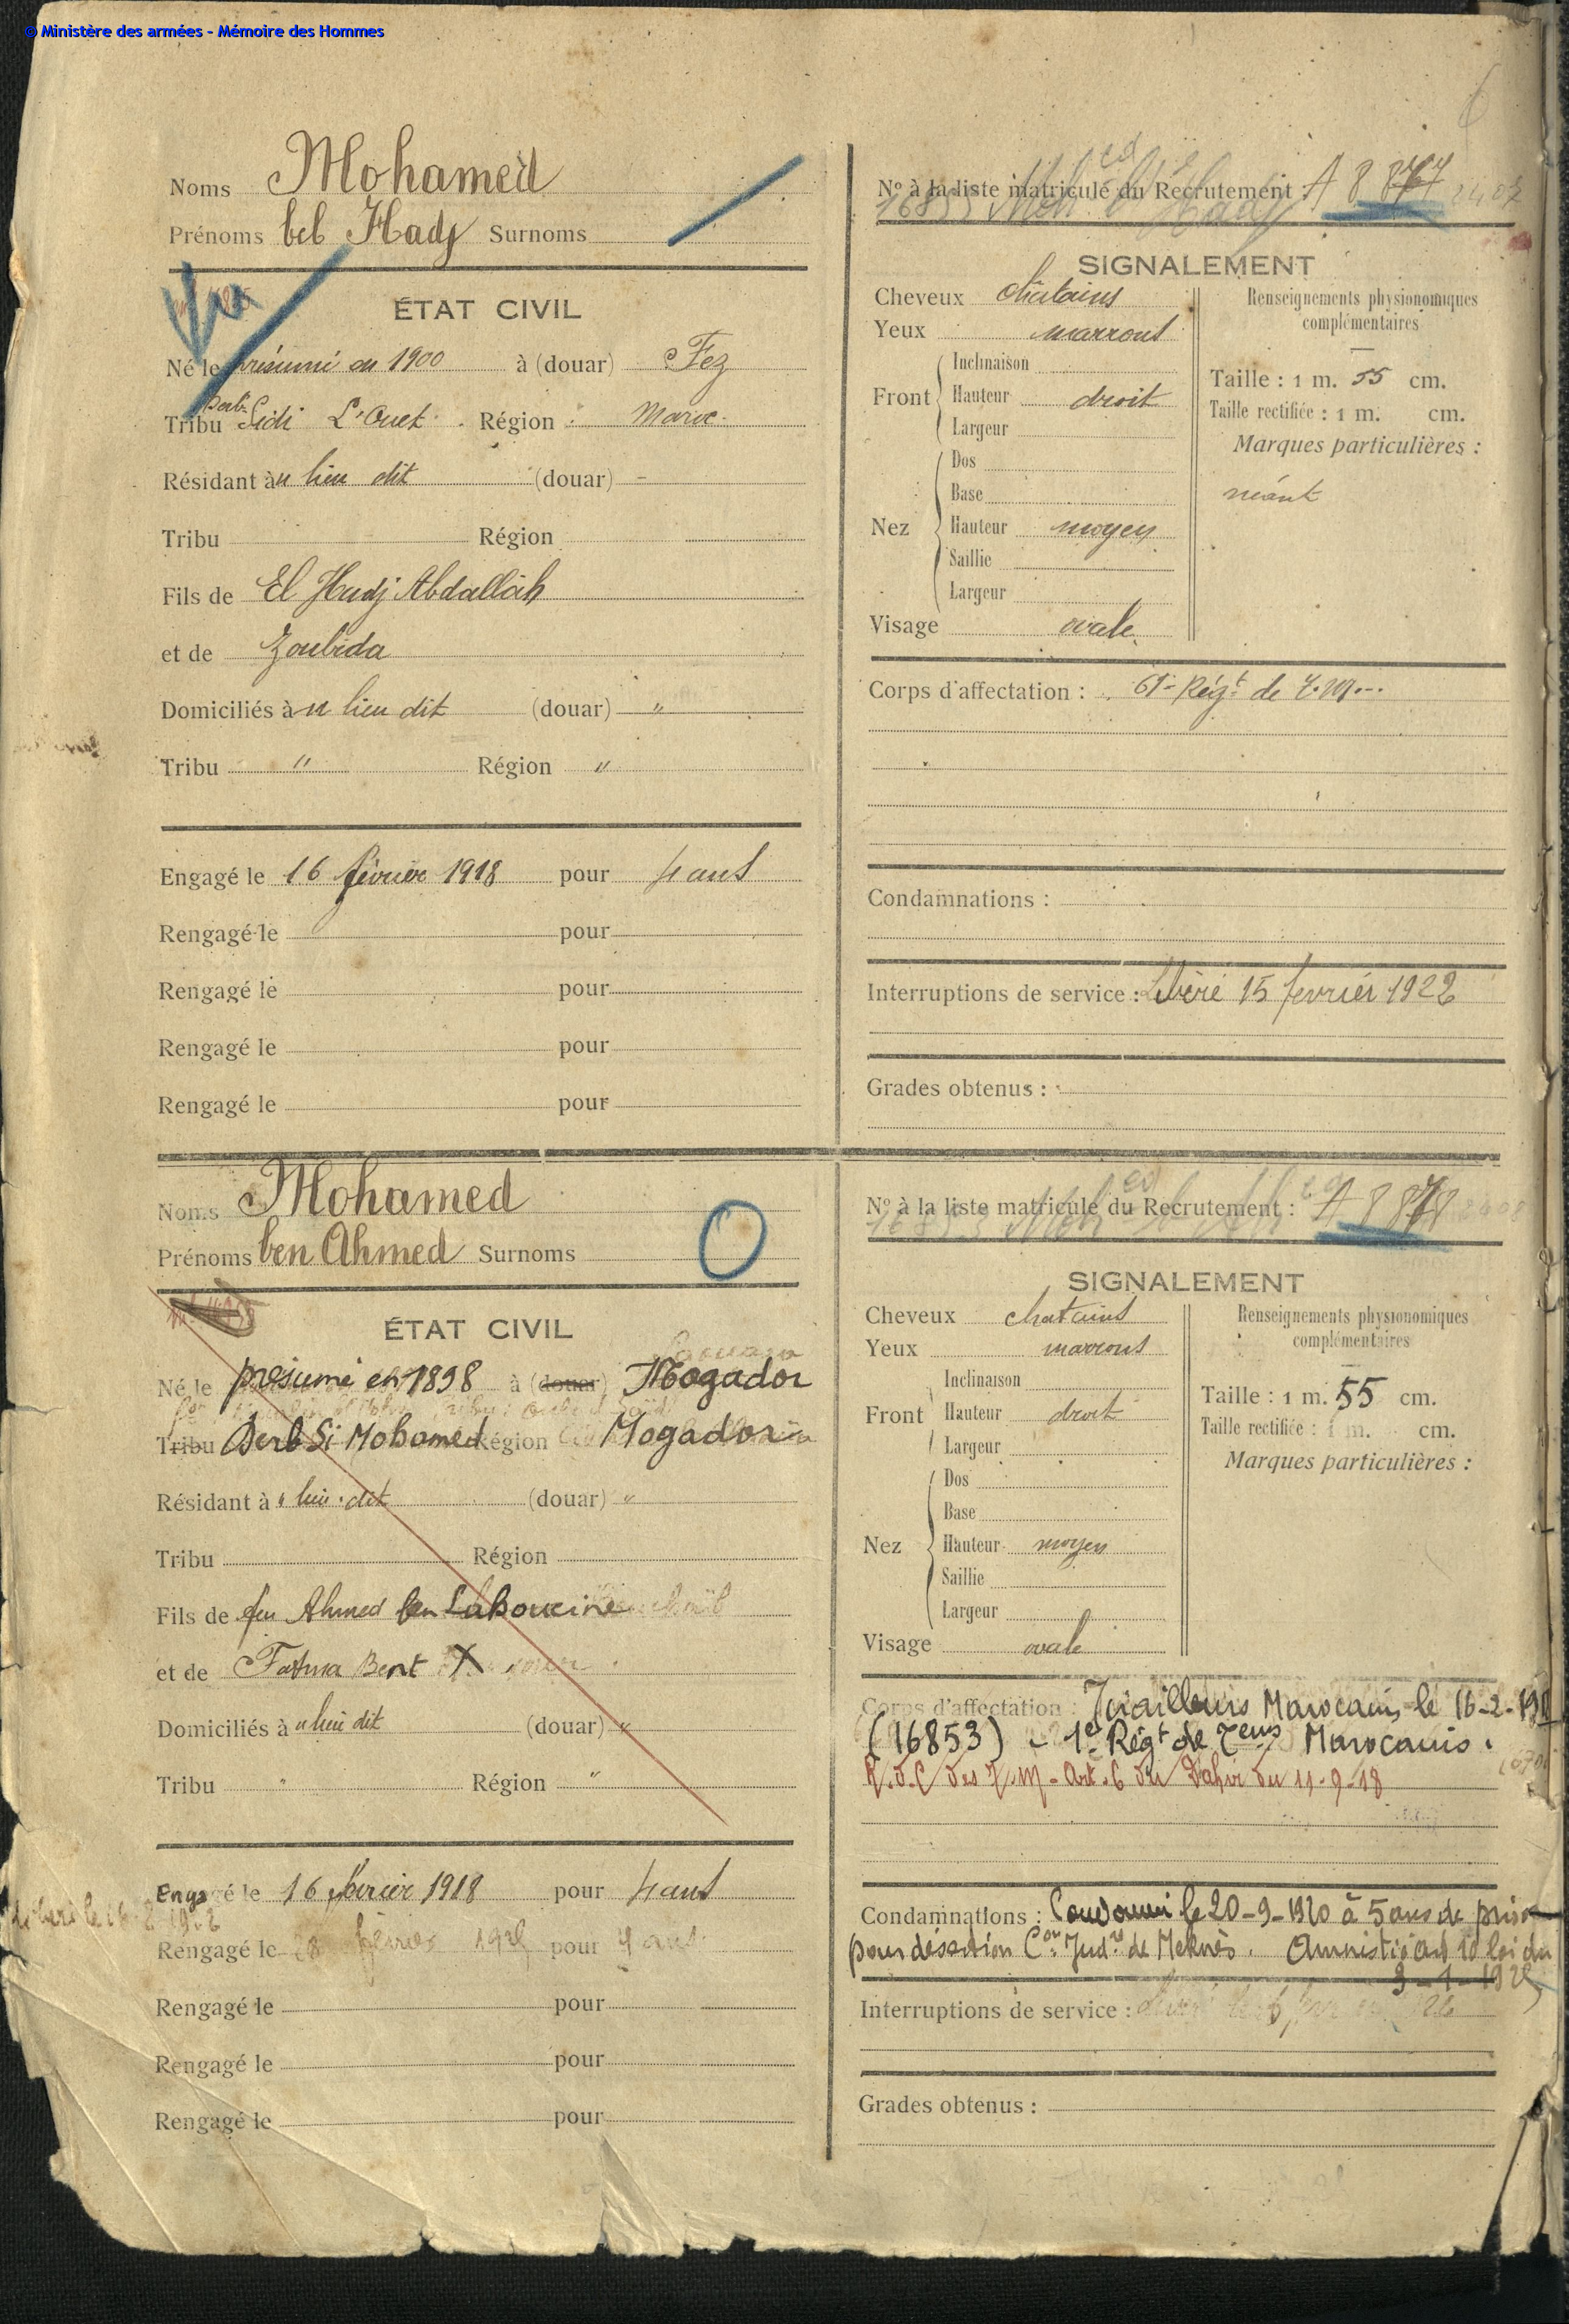 © Ministère des armées - Mémoire des Hommes
Noms Mohamed
Prénoms bel Hadj Surnoms
Vu
ÉTAT CIVIL
Né le présumé en 1900 à (douar) Fez
Derb
Tribu Sidi L'Ouet Région Maroc
Résidant à u lieu dit (douar) -
Tribu Région
Fils de El Hadj Abdallah
et de Zoubida
Domiciliés à u lieu dit (douar) "
Tribu " Région "
Engagé le 16 février 1918 pour 4 ans
Rengagé le pour
Rengagé le pour
Rengagé le pour
Rengagé le pour
N° à la liste matricule du Recrutement : A 8 877
SIGNALEMENT
Cheveux châtains
Yeux marrons
Front
Inclinaison
Hauteur droit
Largeur
Nez
Dos
Base
Hauteur moyen
Saillie
Largeur
Visage ovale
Renseignements physionomiques
complémentaires
Taille : 1 m. 55 cm.
Taille rectifiée : 1 m. cm.
Marques particulières :
néant
Corps d'affectation : Régt de T.M.
Condamnations :
Interruptions de service : Libéré 15 février 1922
Grades obtenus :
Noms Mohamed
Prénoms ben Ahmed Surnoms
ÉTAT CIVIL
Né le présumé en 1898 à (douar) Mogador
Tribu Derb Si Mohamed Région Mogador
Résidant à u lieu dit (douar) "
Tribu Région
Fils de feu Ahmed ben Lahoucine
et de Fatma Bent X
Domiciliés à u lieu dit (douar) "
Tribu " Région "
Engagé le 16 février 1918 pour 4 ans
Rengagé le février pour 4 ans
Rengagé le pour
Rengagé le pour
Rengagé le pour
N° à la liste matricule du Recrutement : A 8 878
SIGNALEMENT
Cheveux chatains
Yeux marrons
Front
Inclinaison
Hauteur droit
Largeur
Nez
Dos
Base
Hauteur moyen
Saillie
Largeur
Visage ovale
Renseignements physionomiques
complémentaires
Taille : 1 m. 55 cm.
Taille rectifiée : 1 m. cm.
Marques particulières :
Corps d'affectation : Tirailleurs Marocains le 16-2-191
(16853) - 1er Régt de Teurs Marocains.
R.d.C des T.M - Art. 6 du Dahir du 11-9-18
Condamnations : Condamné le 20-9-1920 à 5 ans de prison
pour désertion Con Judre de Meknès. Amnistié Art 10 loi du
3-1-1925
Interruptions de service :
Grades obtenus :